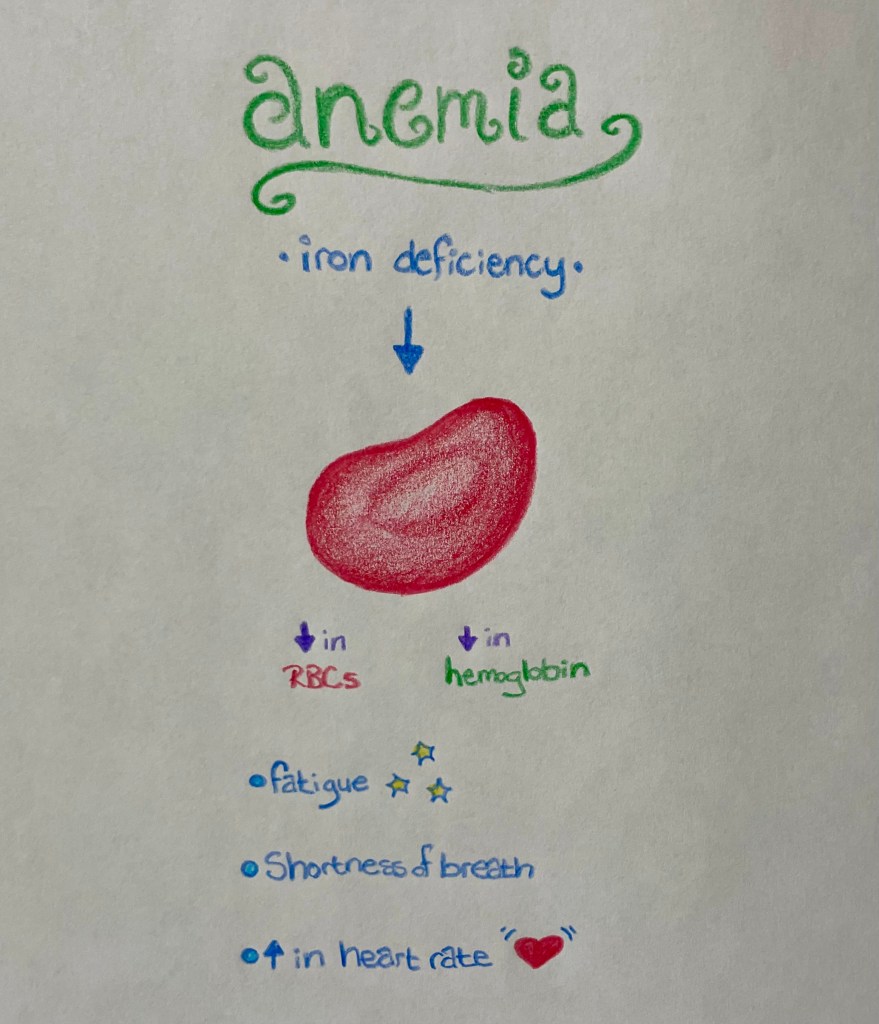 anemia
•iron deficiency•
↓ in ↓ in
RBCs hemoglobin
•fatigue
•Shortness of breath
•↑ in heart rate